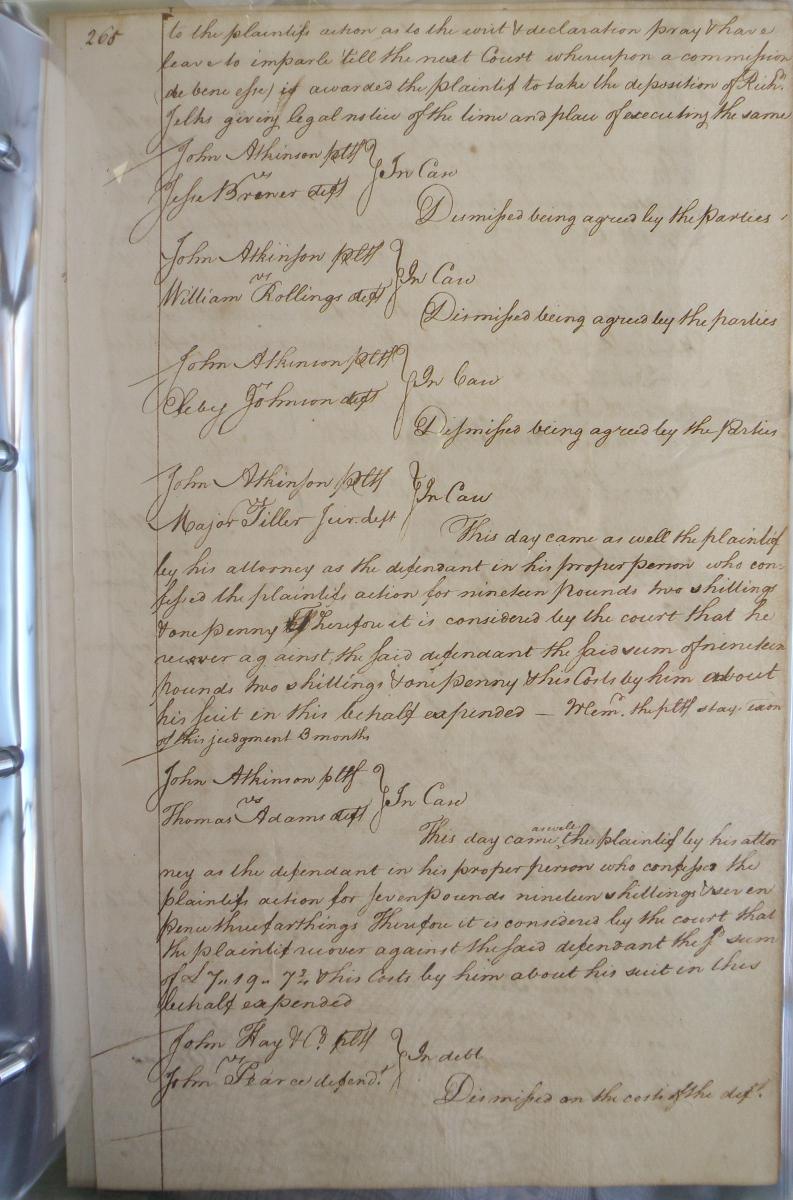 268
to the plaintifs action as to the writ & declaration pray & have
leave to imparle till the next Court whereupon a commission
(de bene esse) is awarded the plaintif to take the deposition of Richd.
Jelks giving legal notice of the time and place of executing the same
John Atkinson pltf
vs
Jesse Brewer deft
In Case
Dismissed being agreed by the Parties
John Atkinson pltf
vs
William Rollings deft
In Case
Dismissed being agreed by the parties
John Atkinson pltf
vs
Johnson deft
In Case
Dismissed being agreed by the Parties
John Atkinson pltf
Major Tiller Jur. deft
In Case
This day came as well the plaintif
by his attorney as the defendant in his proper person who con-
fessed the plaintifs action for nineteen Pounds two shillings
& one penny Therefore it is considered by the court that he
recover against the said defendant the said sum of nineteen
Pounds two shillings & one penny & his Costs by him about
his suit in this behalf expended — Memo. the pltf stay exon
of this judgment 3 months
John Atkinson pltf
vs
Thomas Adams deft
In Case
This day came as well the plaintif by his attor
ney as the defendant in his proper person who confessd the
plaintifs action for seven Pounds nineteen shillings & seven
pence three farthings Therefore it is considered by the court that
the plaintif recover against the said defendant the sd. sum
of £7,, 19,, 7¾ & his Costs by him about his suit in this
behalf expended
John Hay & Co. pltf
vs
John Pearce defendt.
In debt
Dismissed on the costs of the deft.